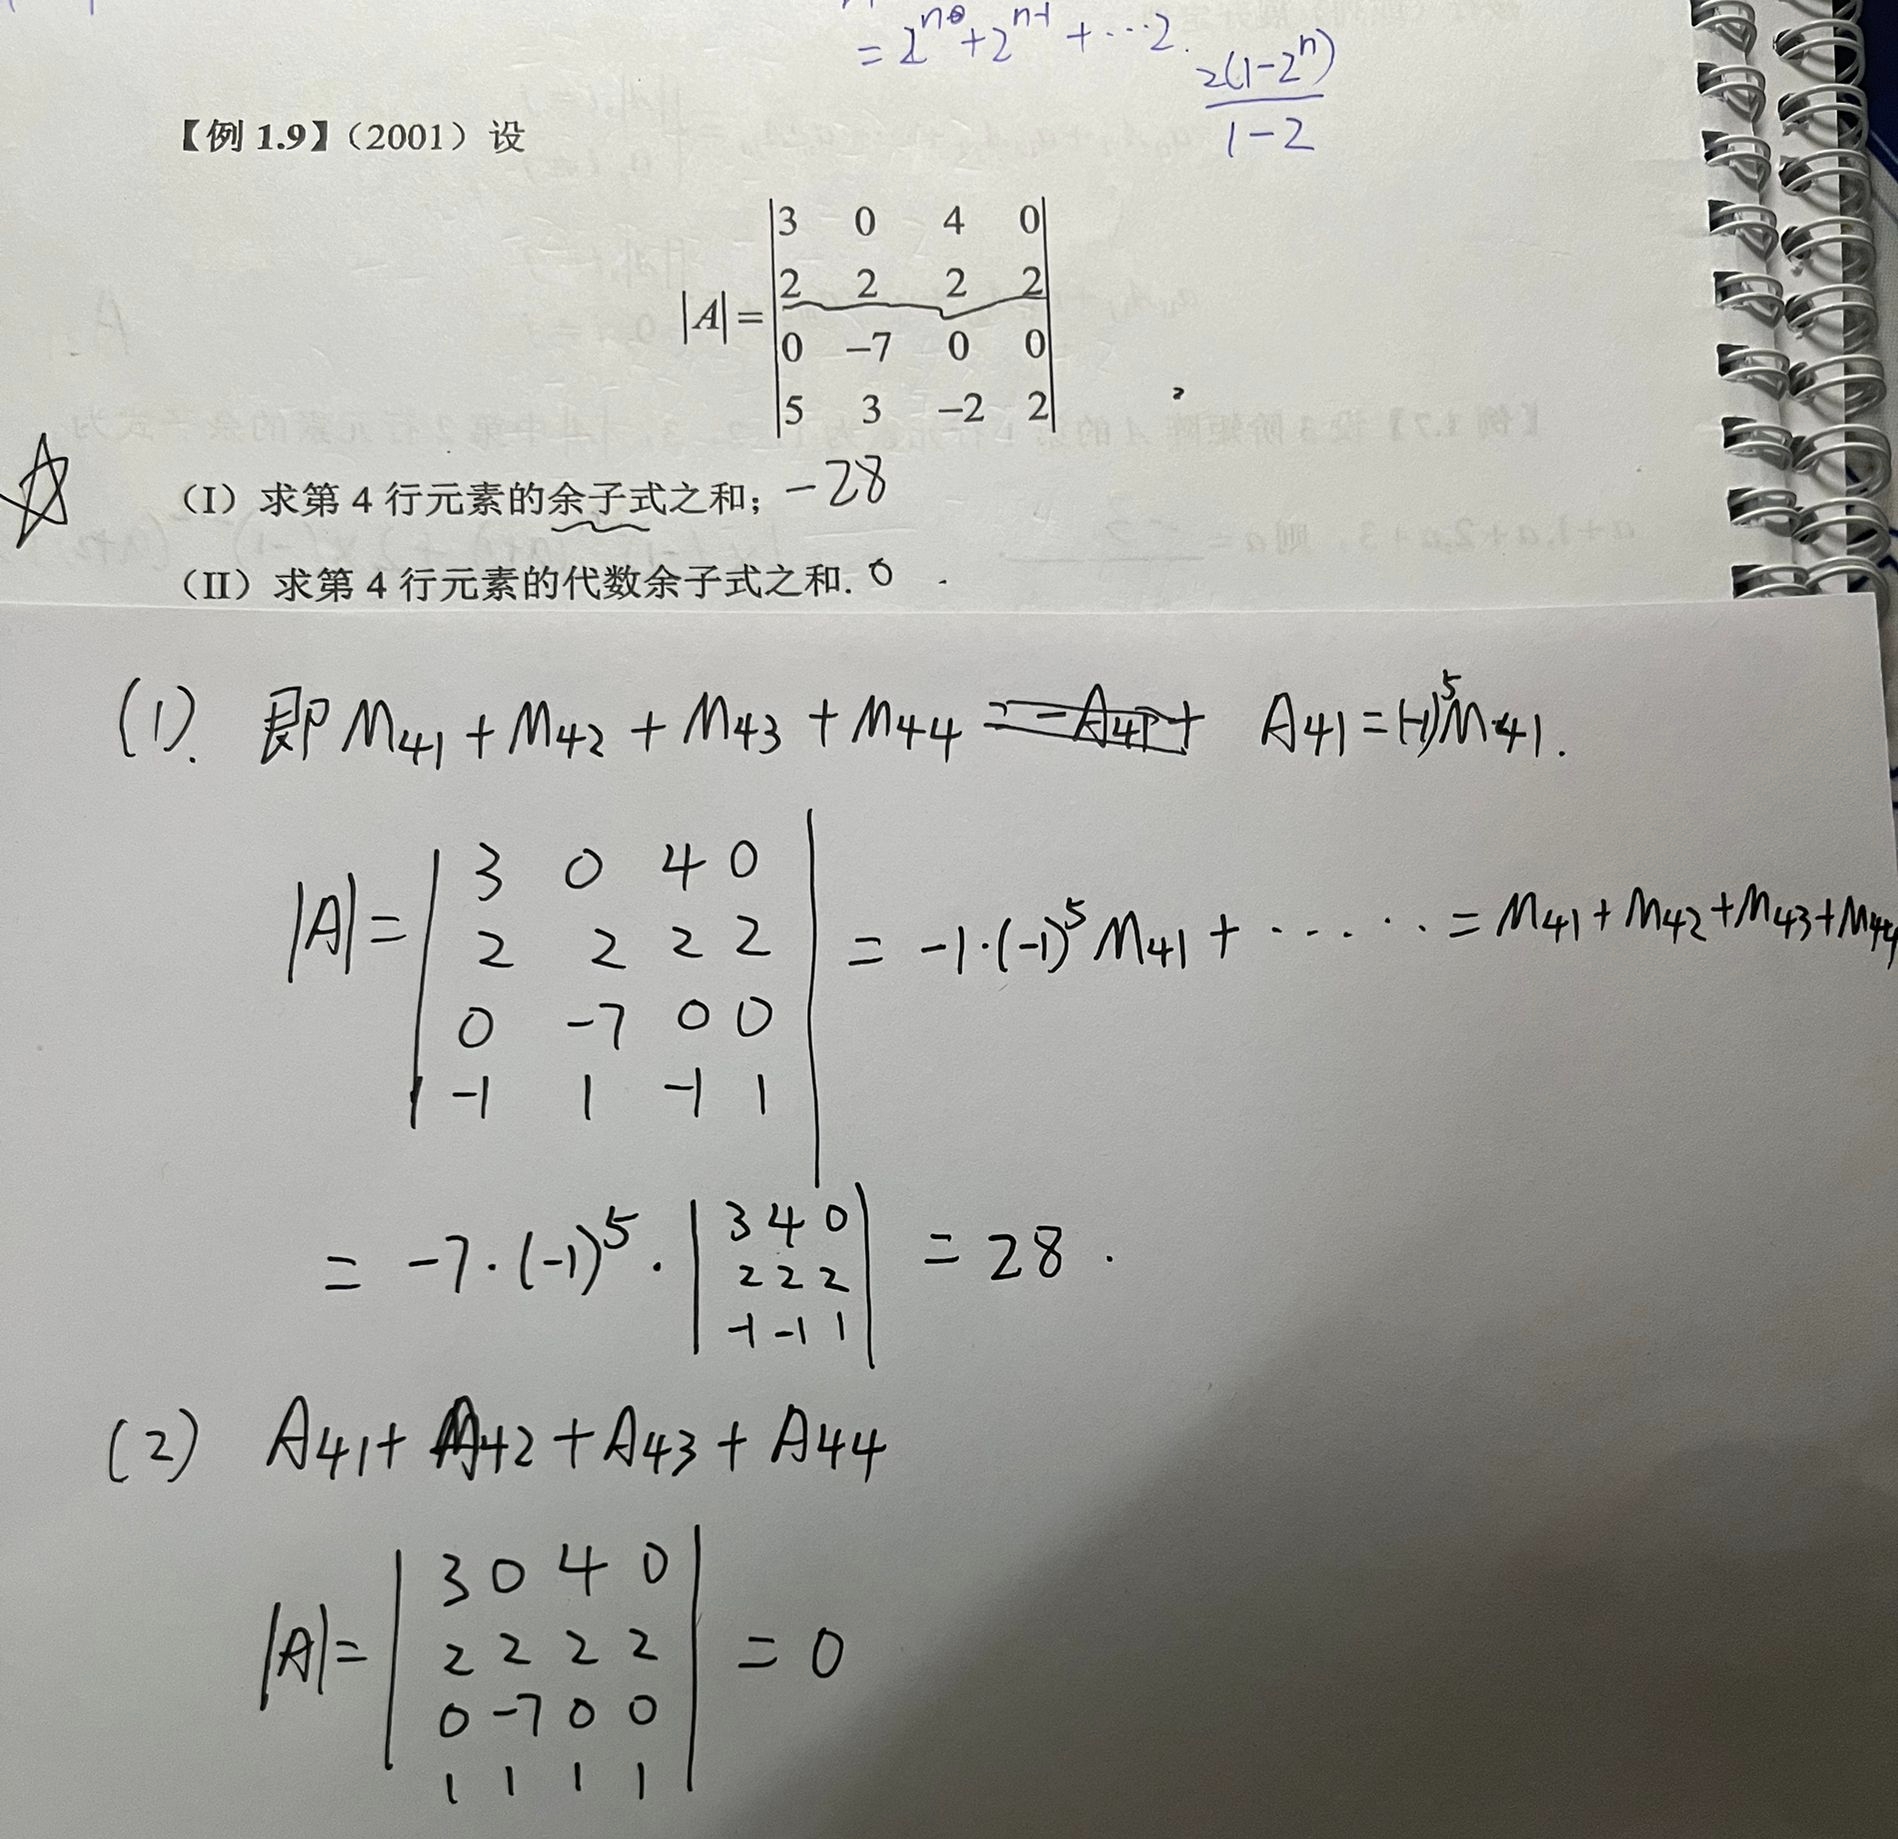 = 2^n + 2^{n-1} + ⋯2.
2(1-2^n)
1-2
【例 1.9】（2001）设
3 0 4 0
2 2 2 2
|A|=
0 -7 0 0
5 3 -2 2
,
（I）求第 4 行元素的余子式之和; -28
（II）求第 4 行元素的代数余子式之和. 0 .
(1). 即 M41 + M42 + M43 + M44 = -A41 + A41 = (-1)^5 M41.
3 0 4 0
|A| = 2 2 2 2 = -1·(-1)^5 M41 + ······ = M41 + M42 + M43 + M44
0 -7 0 0
-1 1 -1 1
3 4 0
= -7·(-1)^5 · 2 2 2 = 28 .
-1 -1 1
(2) A41 + A42 + A43 + A44
3 0 4 0
|A| = 2 2 2 2 = 0
0 -7 0 0
1 1 1 1